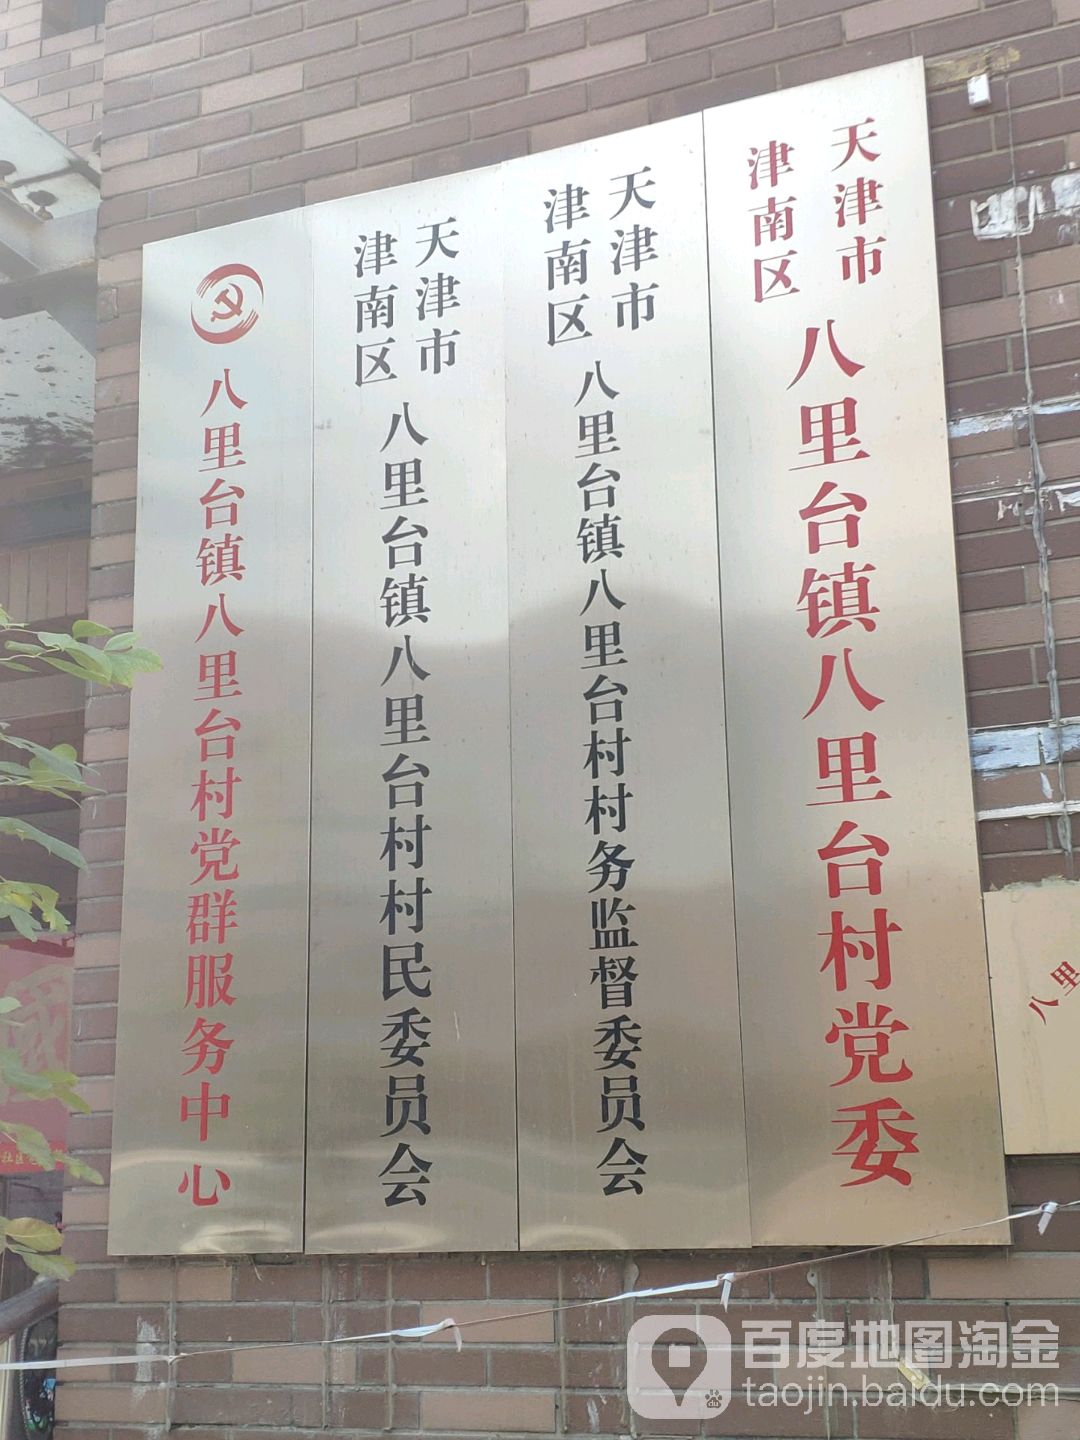 天津市
津南区
八里台镇八里台村党委
天津市
津南区
八里台镇八里台村村务监督委员会
天津市
津南区
八里台镇八里台村村民委员会
八里台镇八里台村党群服务中心
八里
社区
百度地图淘金
taojin.baidu.com